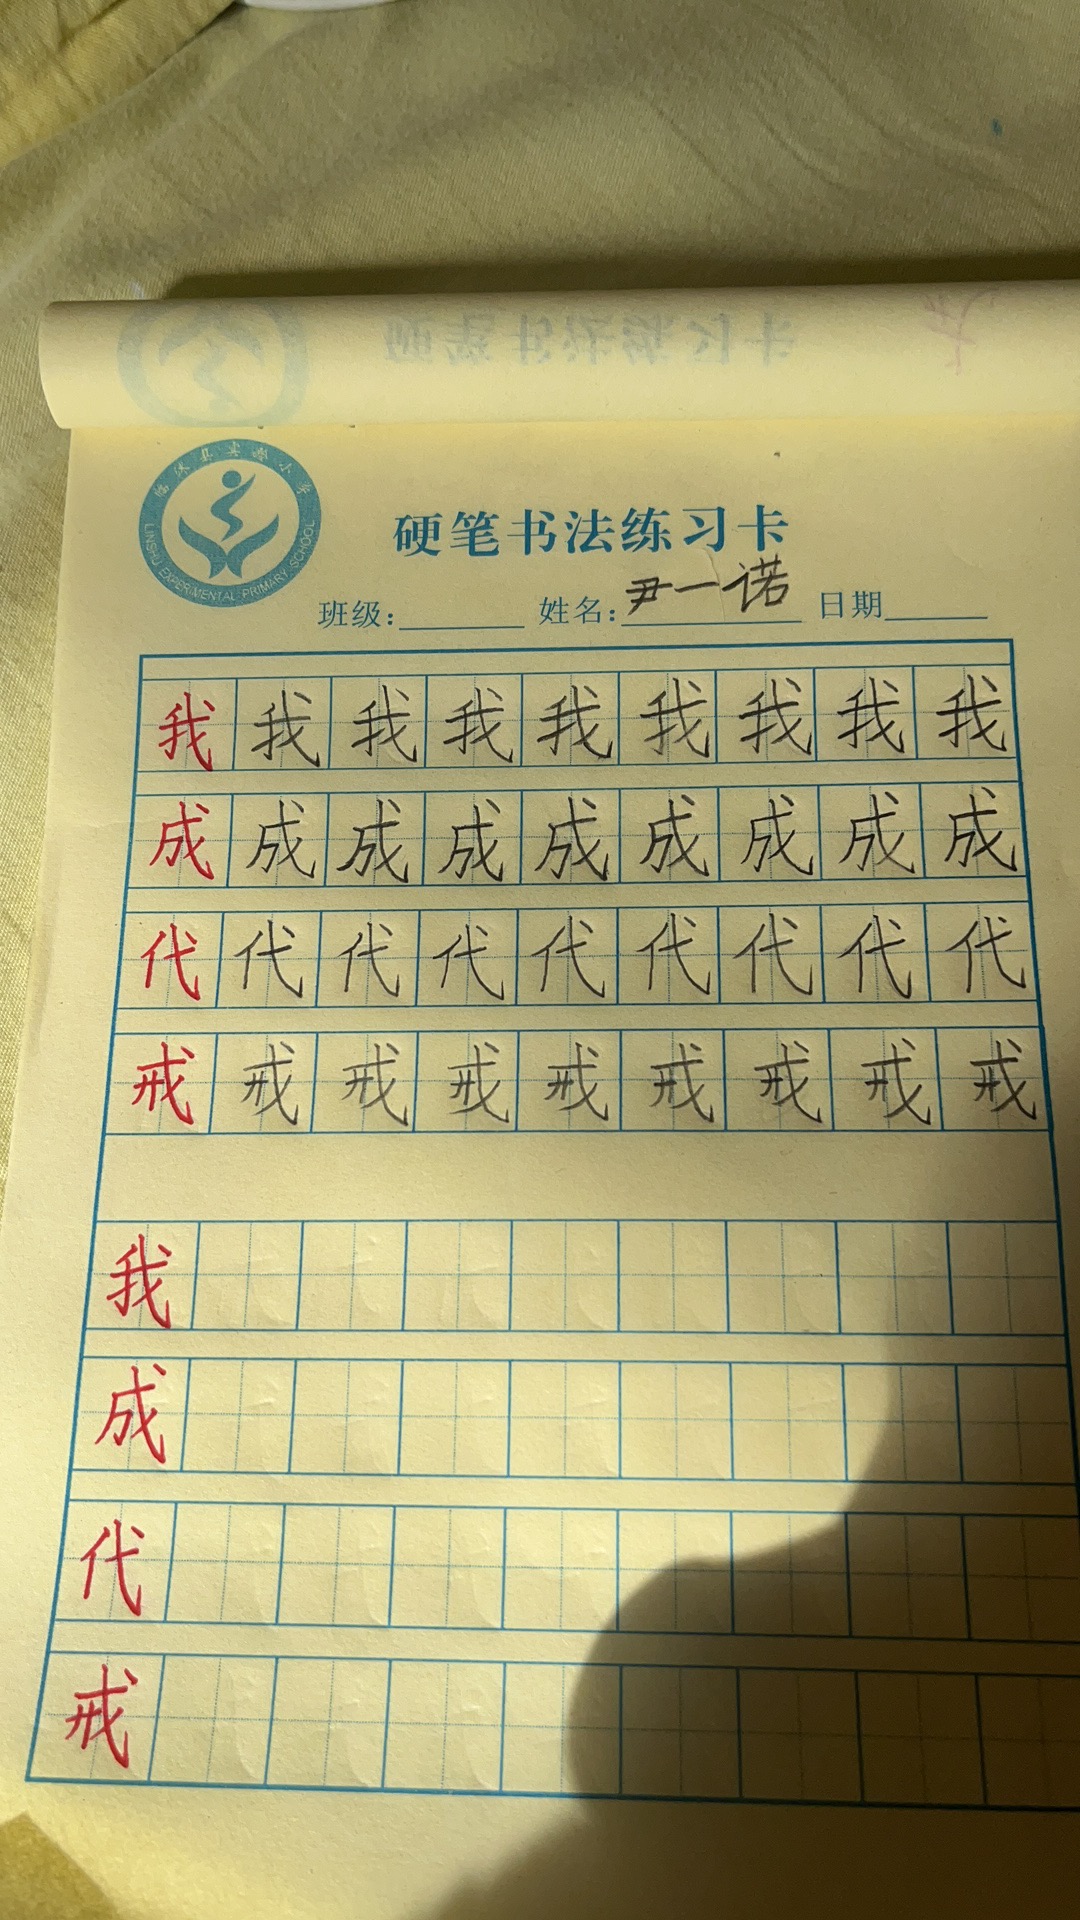 临沭县实验小学
LINSHU EXPERIMENTAL PRIMARY SCHOOL
硬笔书法练习卡
班级: 姓名: 尹一诺 日期
我 我 我 我 我 我 我 我 我
成 成 成 成 成 成 成 成 成
代 代 代 代 代 代 代 代 代
戒 戒 戒 戒 戒 戒 戒 戒 戒
我
成
代
戒